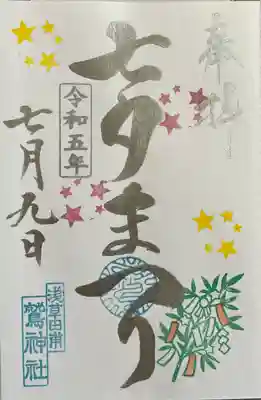 奉拝
七夕まつり
令和五年
七月九日
浅草田甫
鷲神社